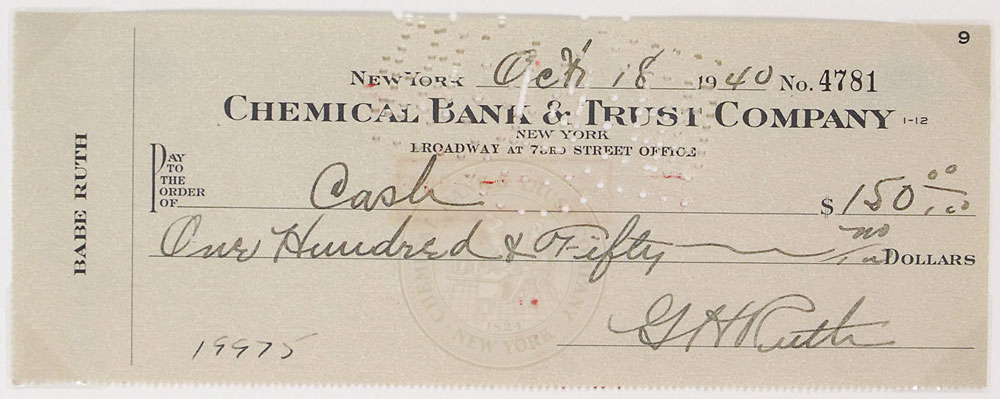 9
New York Oct 18 1940 No. 4781
CHEMICAL BANK & TRUST COMPANY 1-12
NEW YORK
BROADWAY AT 73RD STREET OFFICE
PAY TO THE ORDER OF Cash $150 00/100
One Hundred & Fifty no/100 DOLLARS
G H Ruth
19975
BABE RUTH
1824
NEW YORK